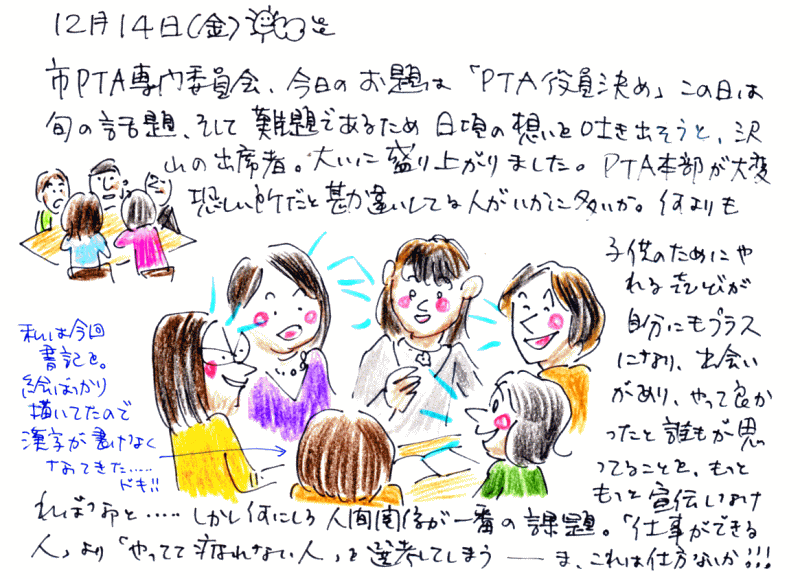 12月14日(金)
市PTA専門委員会、今日のお題は「PTA役員決め」この日は
旬の話題、そして難題であるため日頃の想いを吐き出そうと、沢
山の出席者。大いに盛り上がりました。PTA本部が大変
恐しい所だと勘違いしてる人がいかに多いか。何よりも
子供のためにや
れる喜びが
自分にもプラス
になり、出会い
があり、やって良か
ったと誰もが思
ってることを、もっと
もっと宣伝しなけ
ればっ命と.....しかし何にしろ人間関係が一番の課題。「仕事ができる
人」より「やってて疲れない人」を選考してしまう――ま、これは仕方ないか!!!
私は今回
書記を。
絵ばかり
描いてたので
漢字が書けなく
なってきた.....
ドキ!!